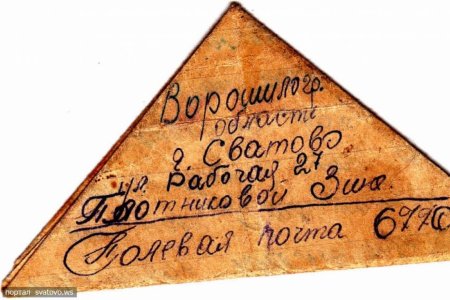 Ворошилогр.
области
г. Сватово
ул. Рабочая 27
Плотниковой Зин.
Полевая почта
портал svatovo.ws